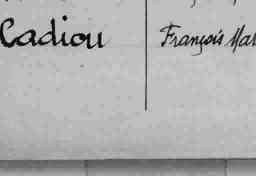 Cadiou François Mar